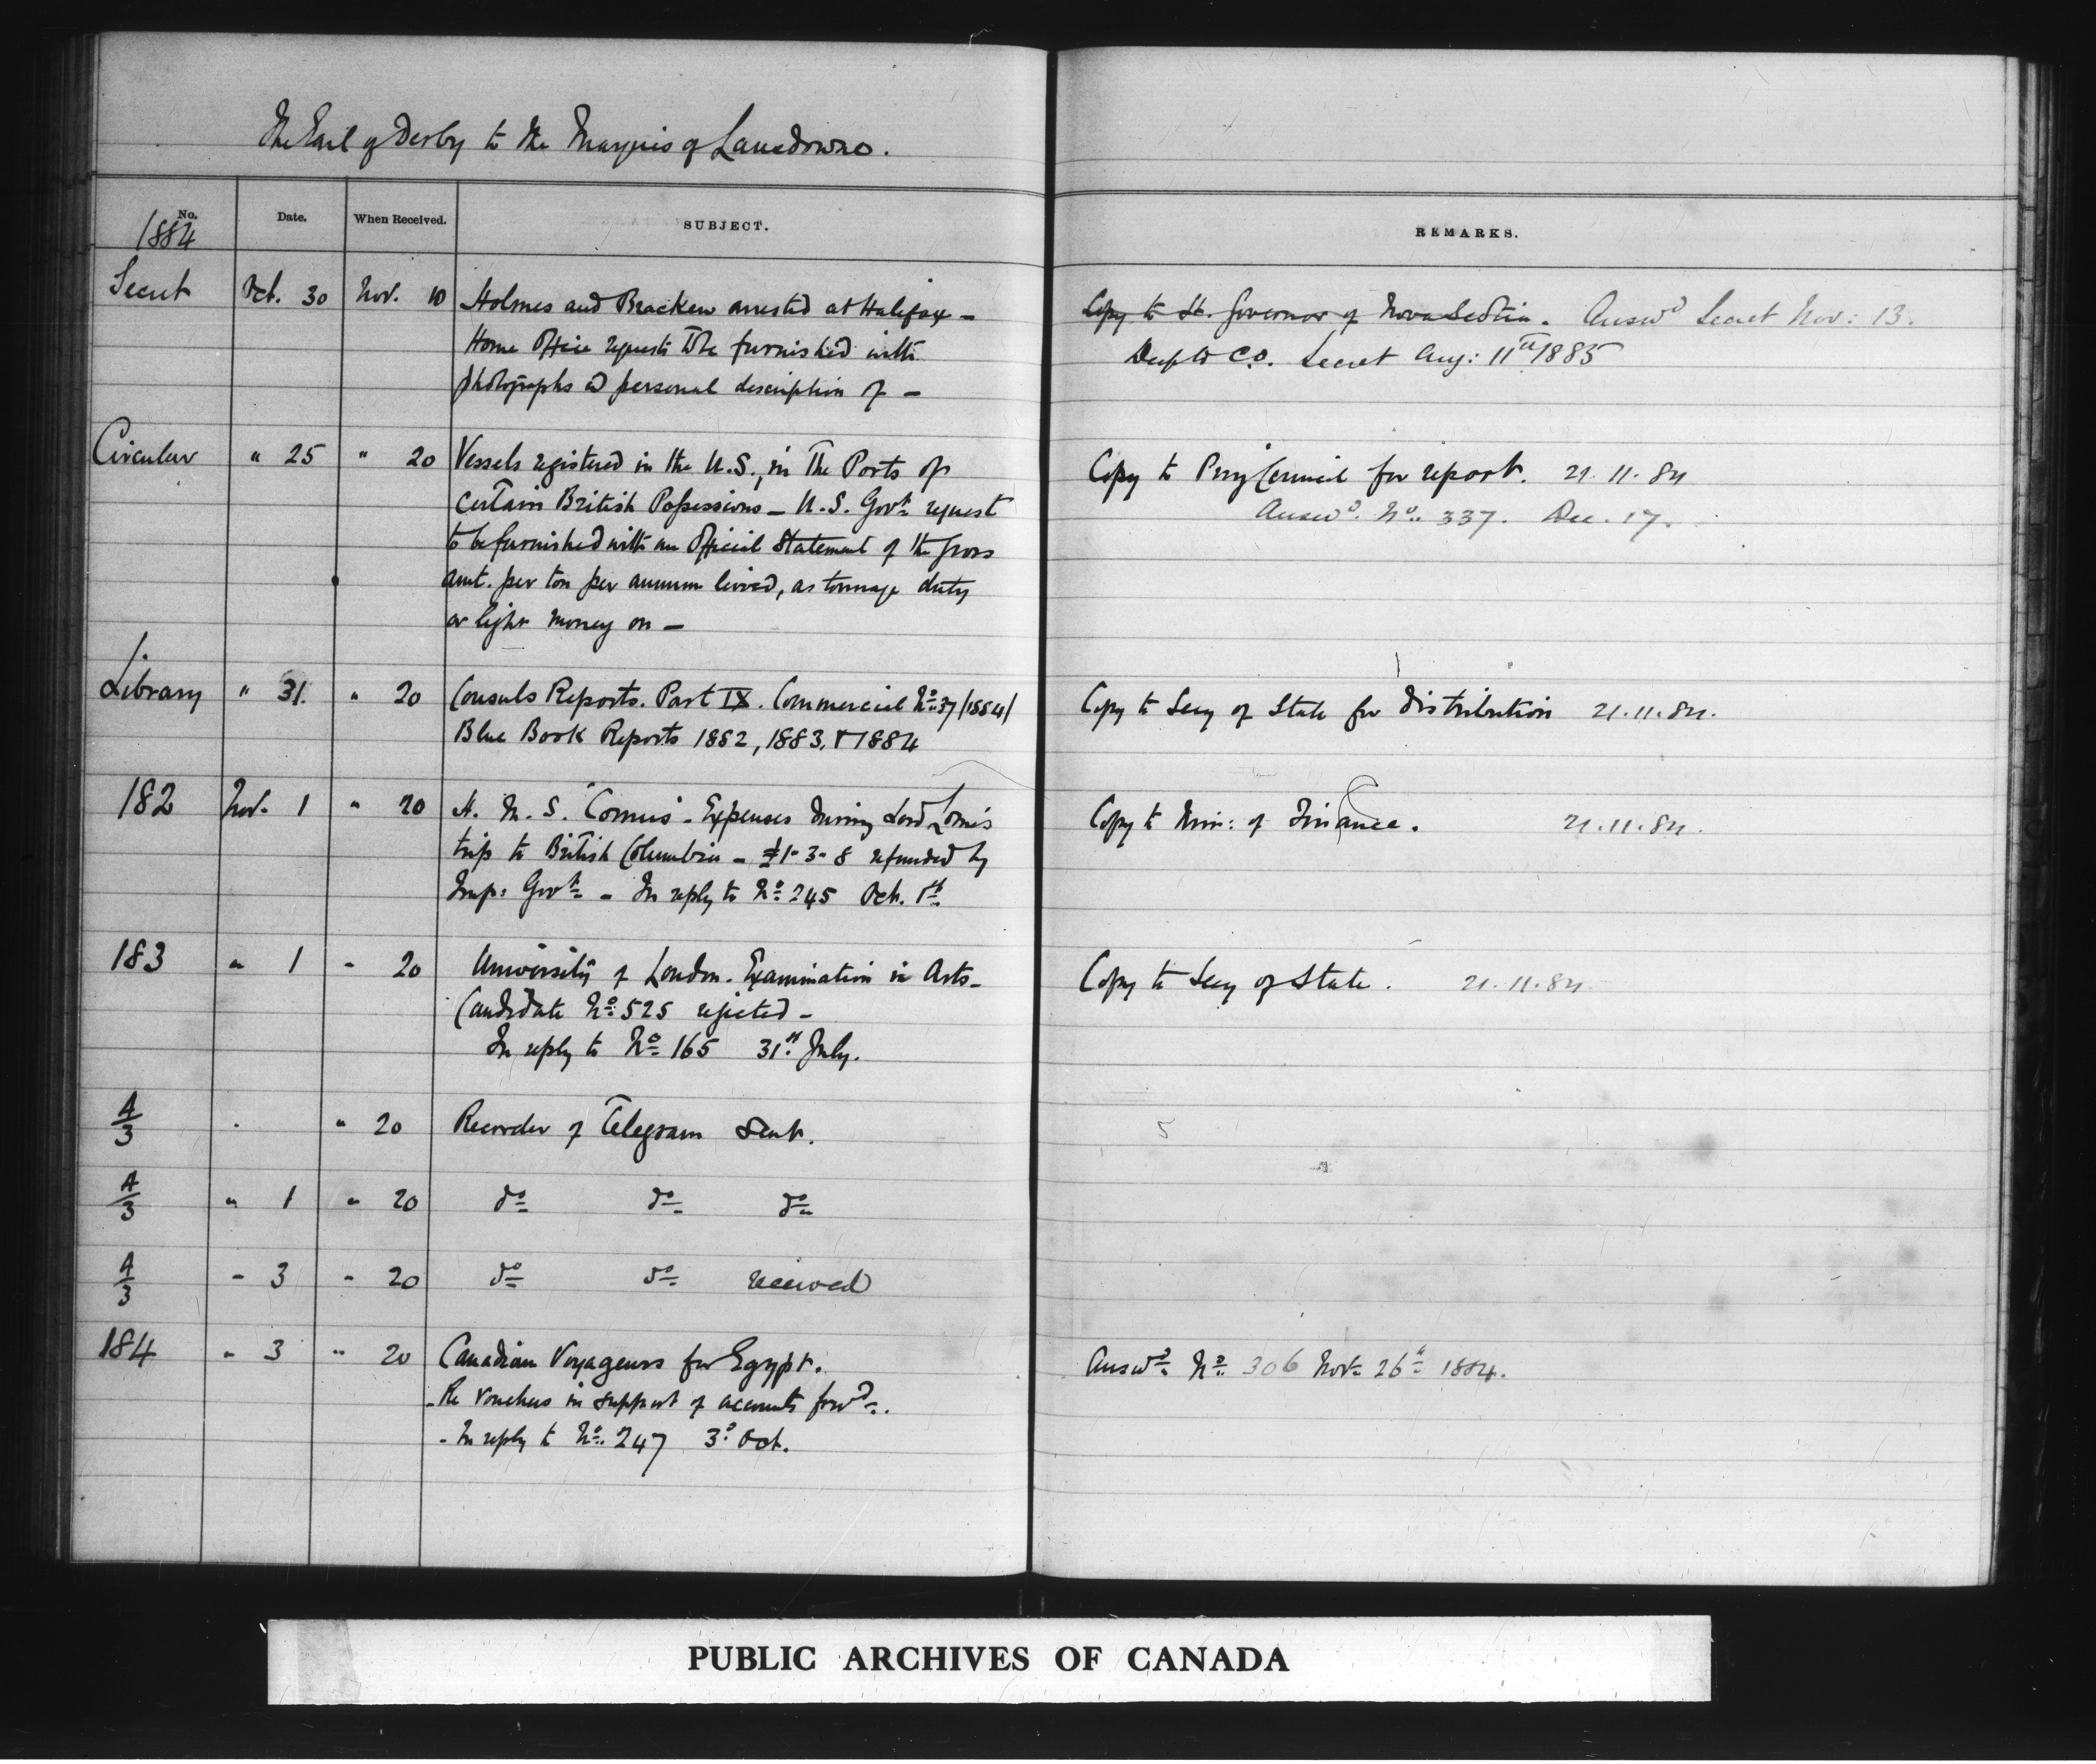 The Earl of Derby to the Marquis of Lansdowne.
No. Date. When Received. SUBJECT. REMARKS.
1884
Secret Oct. 30 Nov. 10 Holmes and Bracken arrested at Halifax – Copy to Lt. Governor of Nova Scotia. Answd Secret Nov: 13.
Home Office requests to be furnished with Desp to C.O. Secret Aug: 11th 1885
photographs & personal description of –
Circular " 25 " 20 Vessels registered in the U.S., in the Ports of Copy to Privy Council for report. 21.11.84
certain British Possessions – U.S. Govt. request Answd. No. 337. Dec. 17.
to be furnished with an Official Statement of the gross
amt. per ton per annum levied, as tonnage duty
or light money on –
Library " 31. " 20 Consuls Reports. Part IX. Commercial No. 37 /1884/ Copy to Secy of State for distribution 21.11.84.
Blue Book Reports 1882, 1883, & 1884
182 Nov. 1 " 20 H. M. S. "Comus" - Expenses during Lord Lorne's Copy to Min: of Finance. 21.11.84.
trip to British Columbia – £1-3-8 refunded by
Imp: Govt. – In reply to No. 245 Oct. 1st
183 " 1 " 20 University of London. Examination in Arts – Copy to Secy of State. 21.11.84
Candidate No. 525 rejected –
In reply to No. 165 31st July.
A/3 " 20 Recorder of Telegram Sent. 5
A/3 " 1 " 20 do do do
A/3 " 3 " 20 do do received
184 " 3 " 20 Canadian Voyageurs for Egypt. Answd. No. 306 Nov. 26th 1884.
- Re vouchers in support of accounts forwd.
- In reply to No. 247 3d Oct.
PUBLIC ARCHIVES OF CANADA